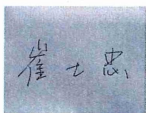 崔士忠